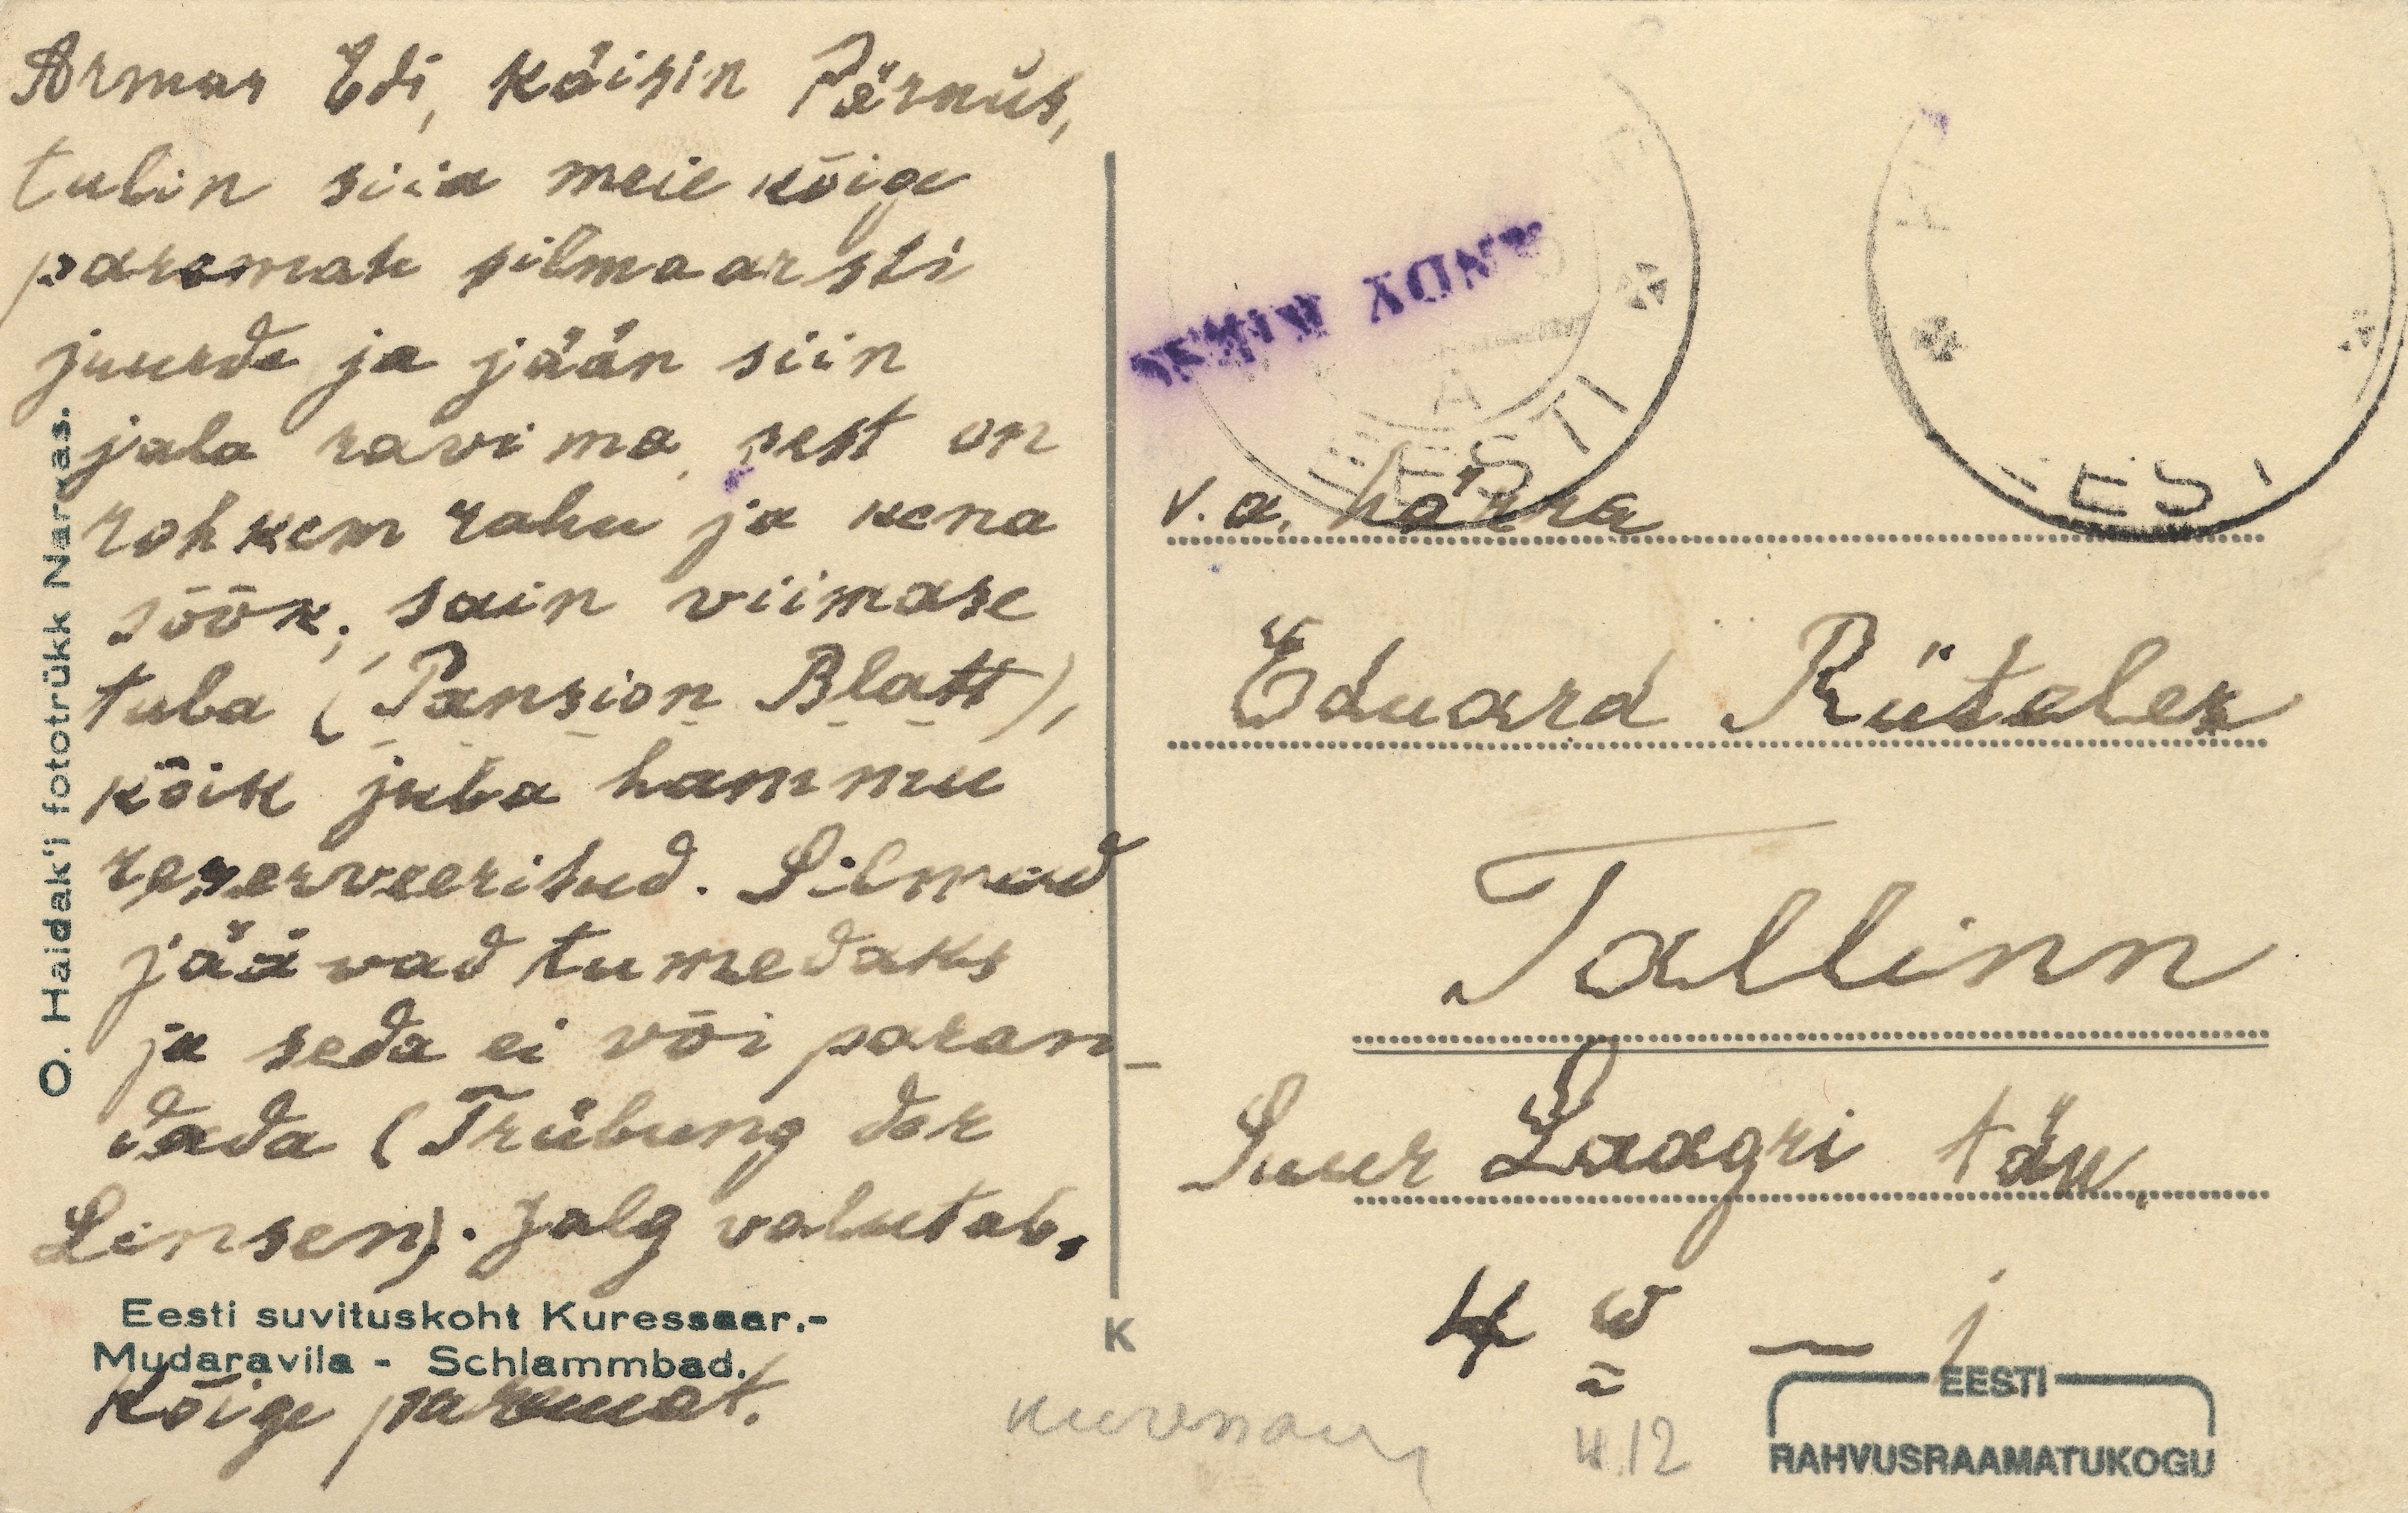 Armas Edi, käisin Pärnus,
tulin siia meie kõige
paremate silmaarsti
juurde ja jään siin
jala ravima, sest on
rohkem rahu ja kena
söök, sain viimase
tuba (Pansion Blatt),
kõik juba hammu
reserveeritud. Silmad
jäävad tumedaks
ja seda ei või paran-
dada (Trübung der
Linsen). Jalg valutab.
Kõige paremat.
O. Haidak'i fototrükk Narvas.
Eesti suvituskoht Kuressaar.-
Mudaravila - Schlammbad.
K
EESTI
EESTI
v. a. härra
Eduard Rütelek
Tallinn
Suur Laagri tän.
4
4.12
EESTI
RAHVUSRAAMATUKOGU